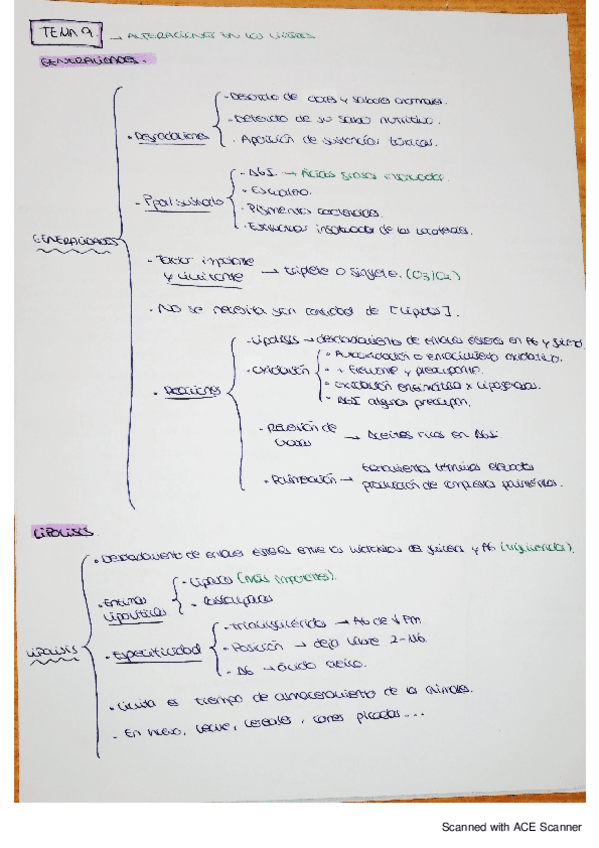 TEMA 9. → ALTERACIONES EN LOS LÍPIDOS
GENERALIDADES.
GENERALIDADES
• Degradaciones
- Desarrollo de olores y sabores anormales.
- Deterioro de su valor nutritivo.
• Aparición de sustancias tóxicas.
- Ppal sustrato
- AGI. → Ácidos grasos insaturados.
• Escualeno.
- Pigmentos carotenoides.
- Estructuras insaturadas de las
- Factor importante y limitante → triplete o singlete. (O3/O2)
- No se necesita gran cantidad de [Lípidos].
• Reacciones
- Lipólisis → desdoblamiento de enlaces ésteres en AG y
- Oxidación
• Autooxidación o enranciamiento oxidativo.
• + Frecuente y preocupante.
• Oxidación enzimática x lipooxigenasas.
• AGI algunos
- Reversión de → Aceites ricos en AGI
• Polimerización → tratamientos térmicos elevados producción de compuestos poliméricos.
LIPÓLISIS
LIPÓLISIS
• Desdoblamiento de enlaces ésteres entre las moléculas de glicerol y AG
• Enzimas lipolíticas
- Lipasas (más importantes).
• Fosfolipasas
• Especificidad
- Triacilglicéridos → AG de ↓ Pm
- Posición → deja libre 2-
- AG → Ácido oleico.
• Limita el tiempo de almacenamiento de los
- En huevo, leche, cereales, carnes picadas...
Scanned with ACE Scanner